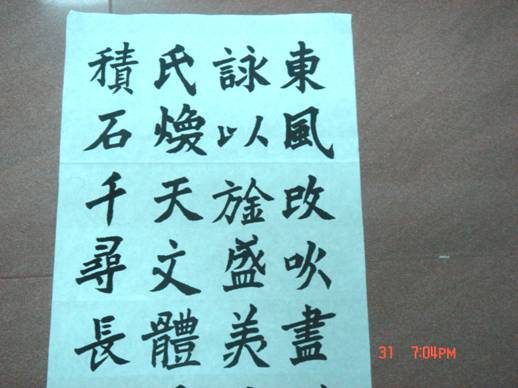 東風改吹盡
詠以旌盛美
氏煥天文體
積石千尋長
31 7:04PM